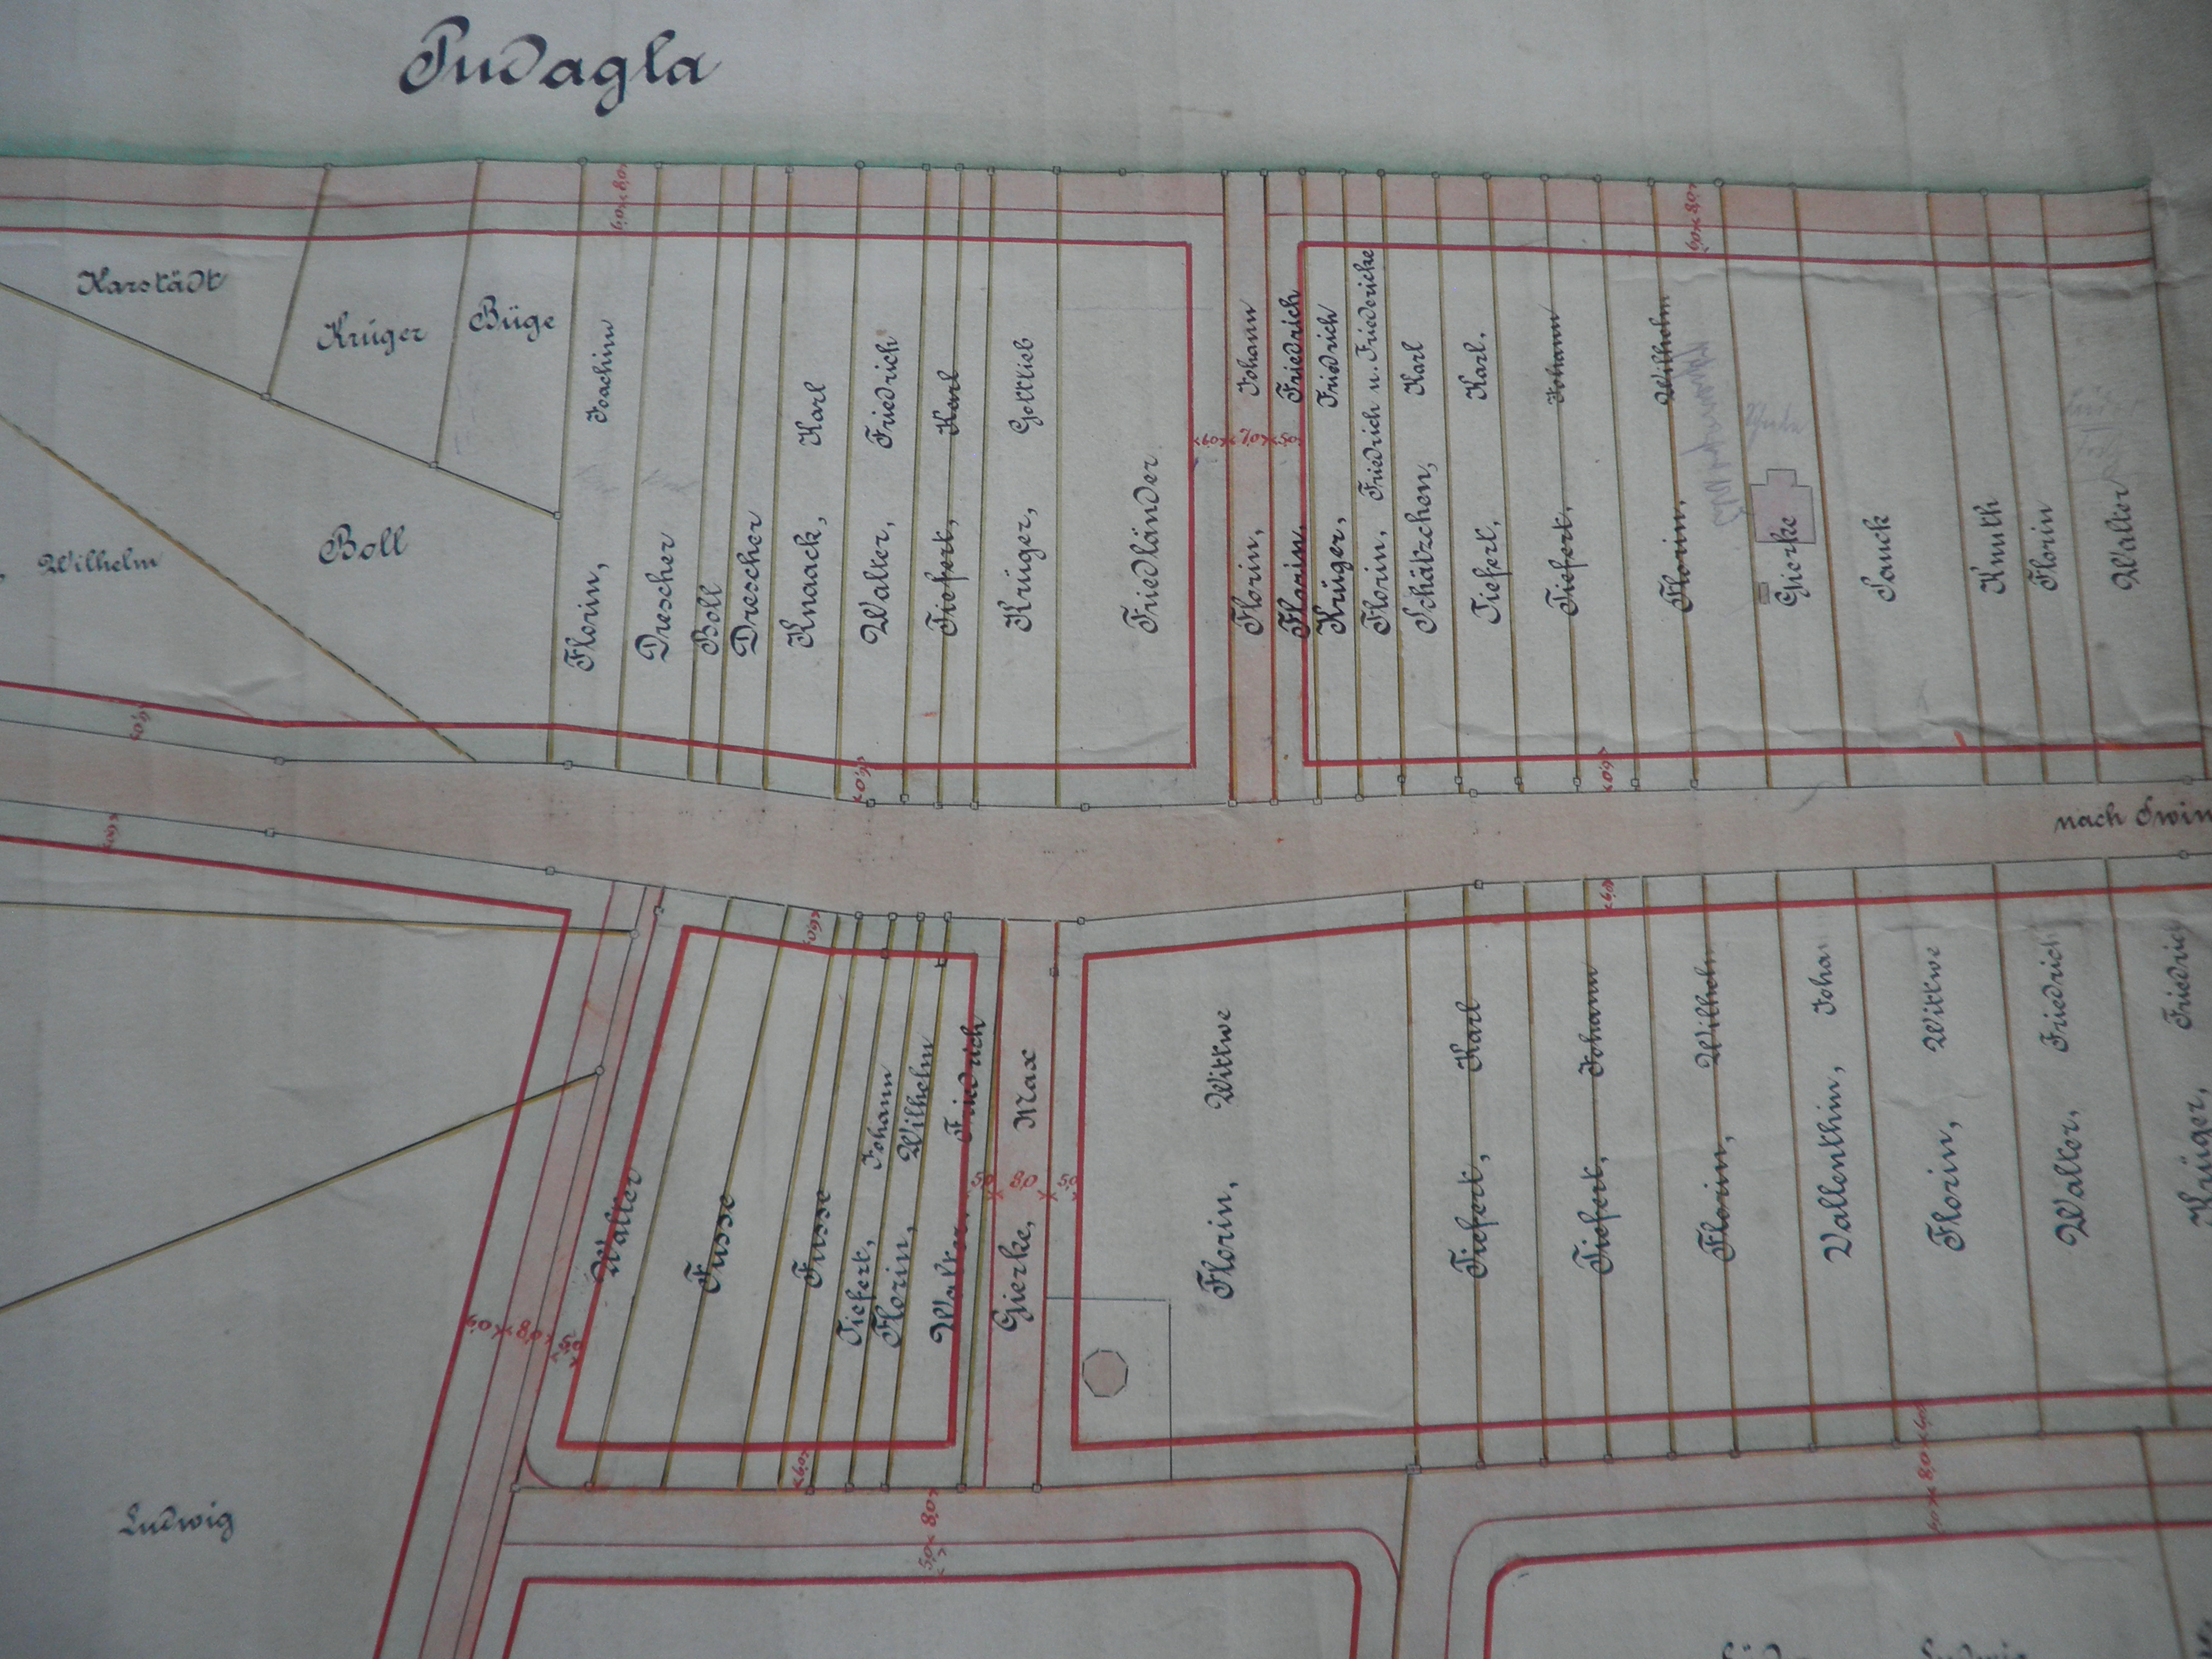 Pudagla
Karstädt
Krüger
Büge
Wilhelm
Boll
Florin, Joachim
Drescher
Boll
Drescher
Knaack, Karl
Walter, Friedrich
Tiefert, Karl
Krüger, Gottlieb
Friedländer
Florin, Johann
Florin, Friedrich
Krüger, Friedrich
Florin, Friedrich u. Friedericke
Schätzchen, Karl
Tiefert, Karl.
Tiefert, Johann
Florin, Wilhelm
Gierke
Sauck
Knuth
Florin
Walter
6,0 8,0
6,0 8,0
6,0 7,0 5,0
6,0
6,0
6,0
nach Swin
6,0
6,0
6,0
Walter
Fusse
Fusse
Tiefert, Johann
Florin, Wilhelm
Walter, Friedrich
Gierke, Max
5,0 8,0 5,0
Florin, Wittwe
Tiefert, Karl
Tiefert, Johann
Florin, Wilhelm
Vallenthin, Johan
Florin, Wittwe
Walter, Friedrich
Krüger, Friedrich
6,0 8,0 5,0
6,0
5,0 8,0
6,0 8,0 6,0
Ludwig
Ludwig